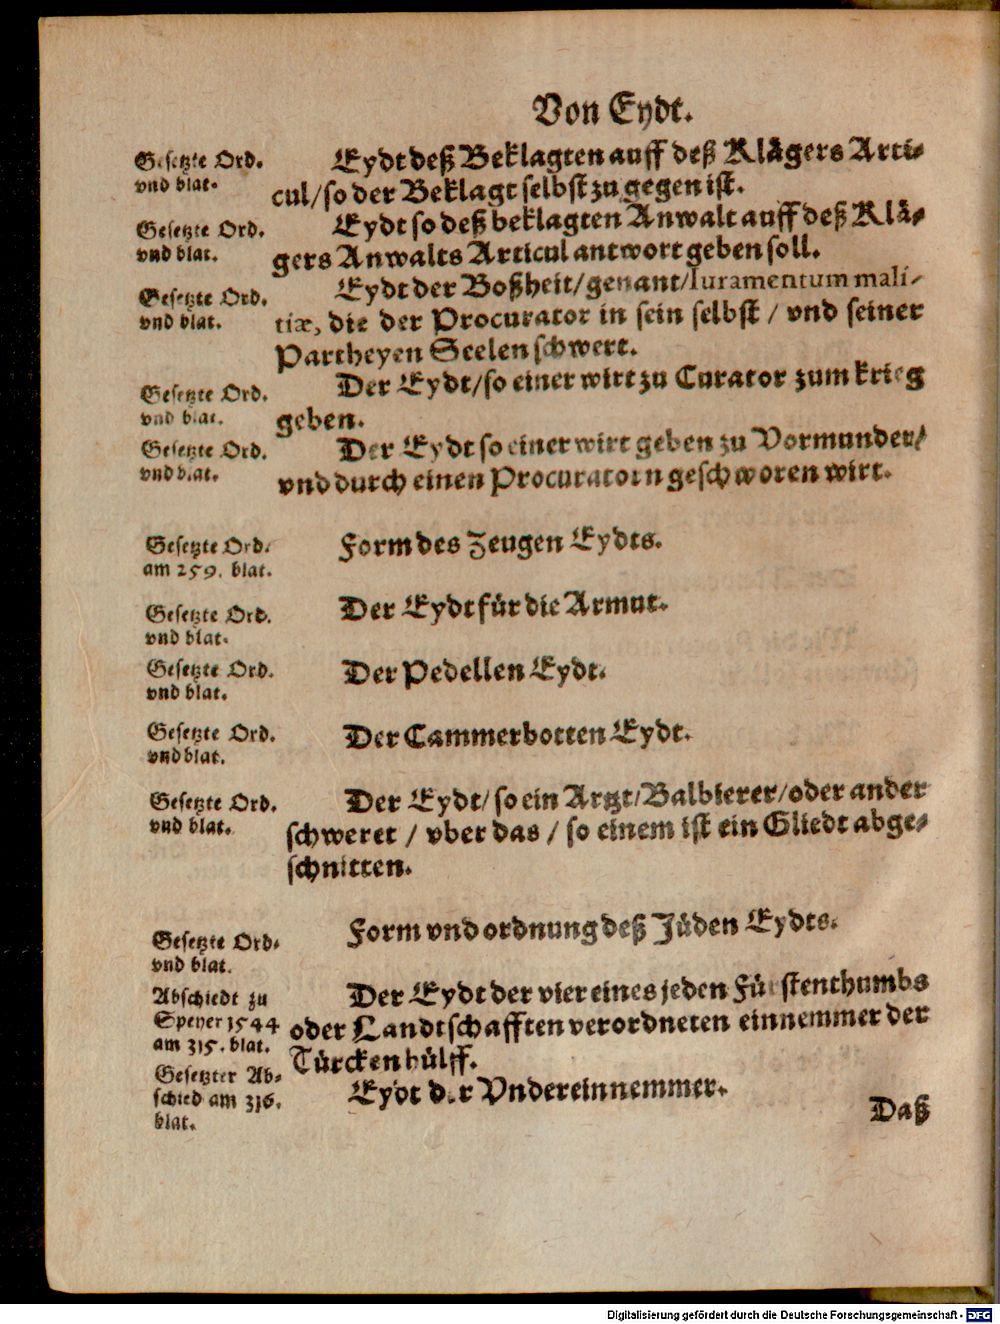 Von Eydt.
Gesetzte Ord.
vnd blat.
Eydt deß Beklagten auff deß Klägers Arti-
cul/so der Beklagt selbst zu gegen ist.
Gesetzte Ord.
vnd blat.
Eydt so deß beklagten Anwalt auff deß Klä-
gers Anwalts Articul antwort geben soll.
Gesetzte Ord.
vnd blat.
Eydt der Boßheit/genant/Iuramentum mali-
tiæ, die der Procurator in sein selbst / vnd seiner
Partheyen Seelen schwert.
Gesetzte Ord.
vnd blat.
Der Eydt/so einer wirt zu Curator zum krieg
geben.
Gesetzte Ord.
vnd blat.
Der Eydt so einer wirt geben zu Vormunder/
vnd durch einen Procuratorn geschworen wirt.
Gesetzte Ord.
am 259. blat.
Form des Zeugen Eydts.
Gesetzte Ord.
vnd blat.
Der Eydt für die Armut.
Gesetzte Ord.
vnd blat.
Der Pedellen Eydt.
Gesetzte Ord.
vnd blat.
Der Cammerbotten Eydt.
Gesetzte Ord.
vnd blat.
Der Eydt/ so ein Artzt/Balbierer/oder ander
schweret / vber das / so einem ist ein Gliedt abge-
schnitten.
Gesetzte Ord.
vnd blat.
Form vnd ordnung deß Jüden Eydts.
Abschiedt zu
Speyer 1544
am 315. blat.
Der Eydt der vier eines jeden Fürstenthumbs
oder Landtschafften verordneten einnemmer der
Türcken hülff.
Gesetzter Ab-
schied am 316.
blat.
Eydt der Vndereinnemmer.
Daß
Digitalisierung gefördert durch die Deutsche Forschungsgemeinschaft - DFG